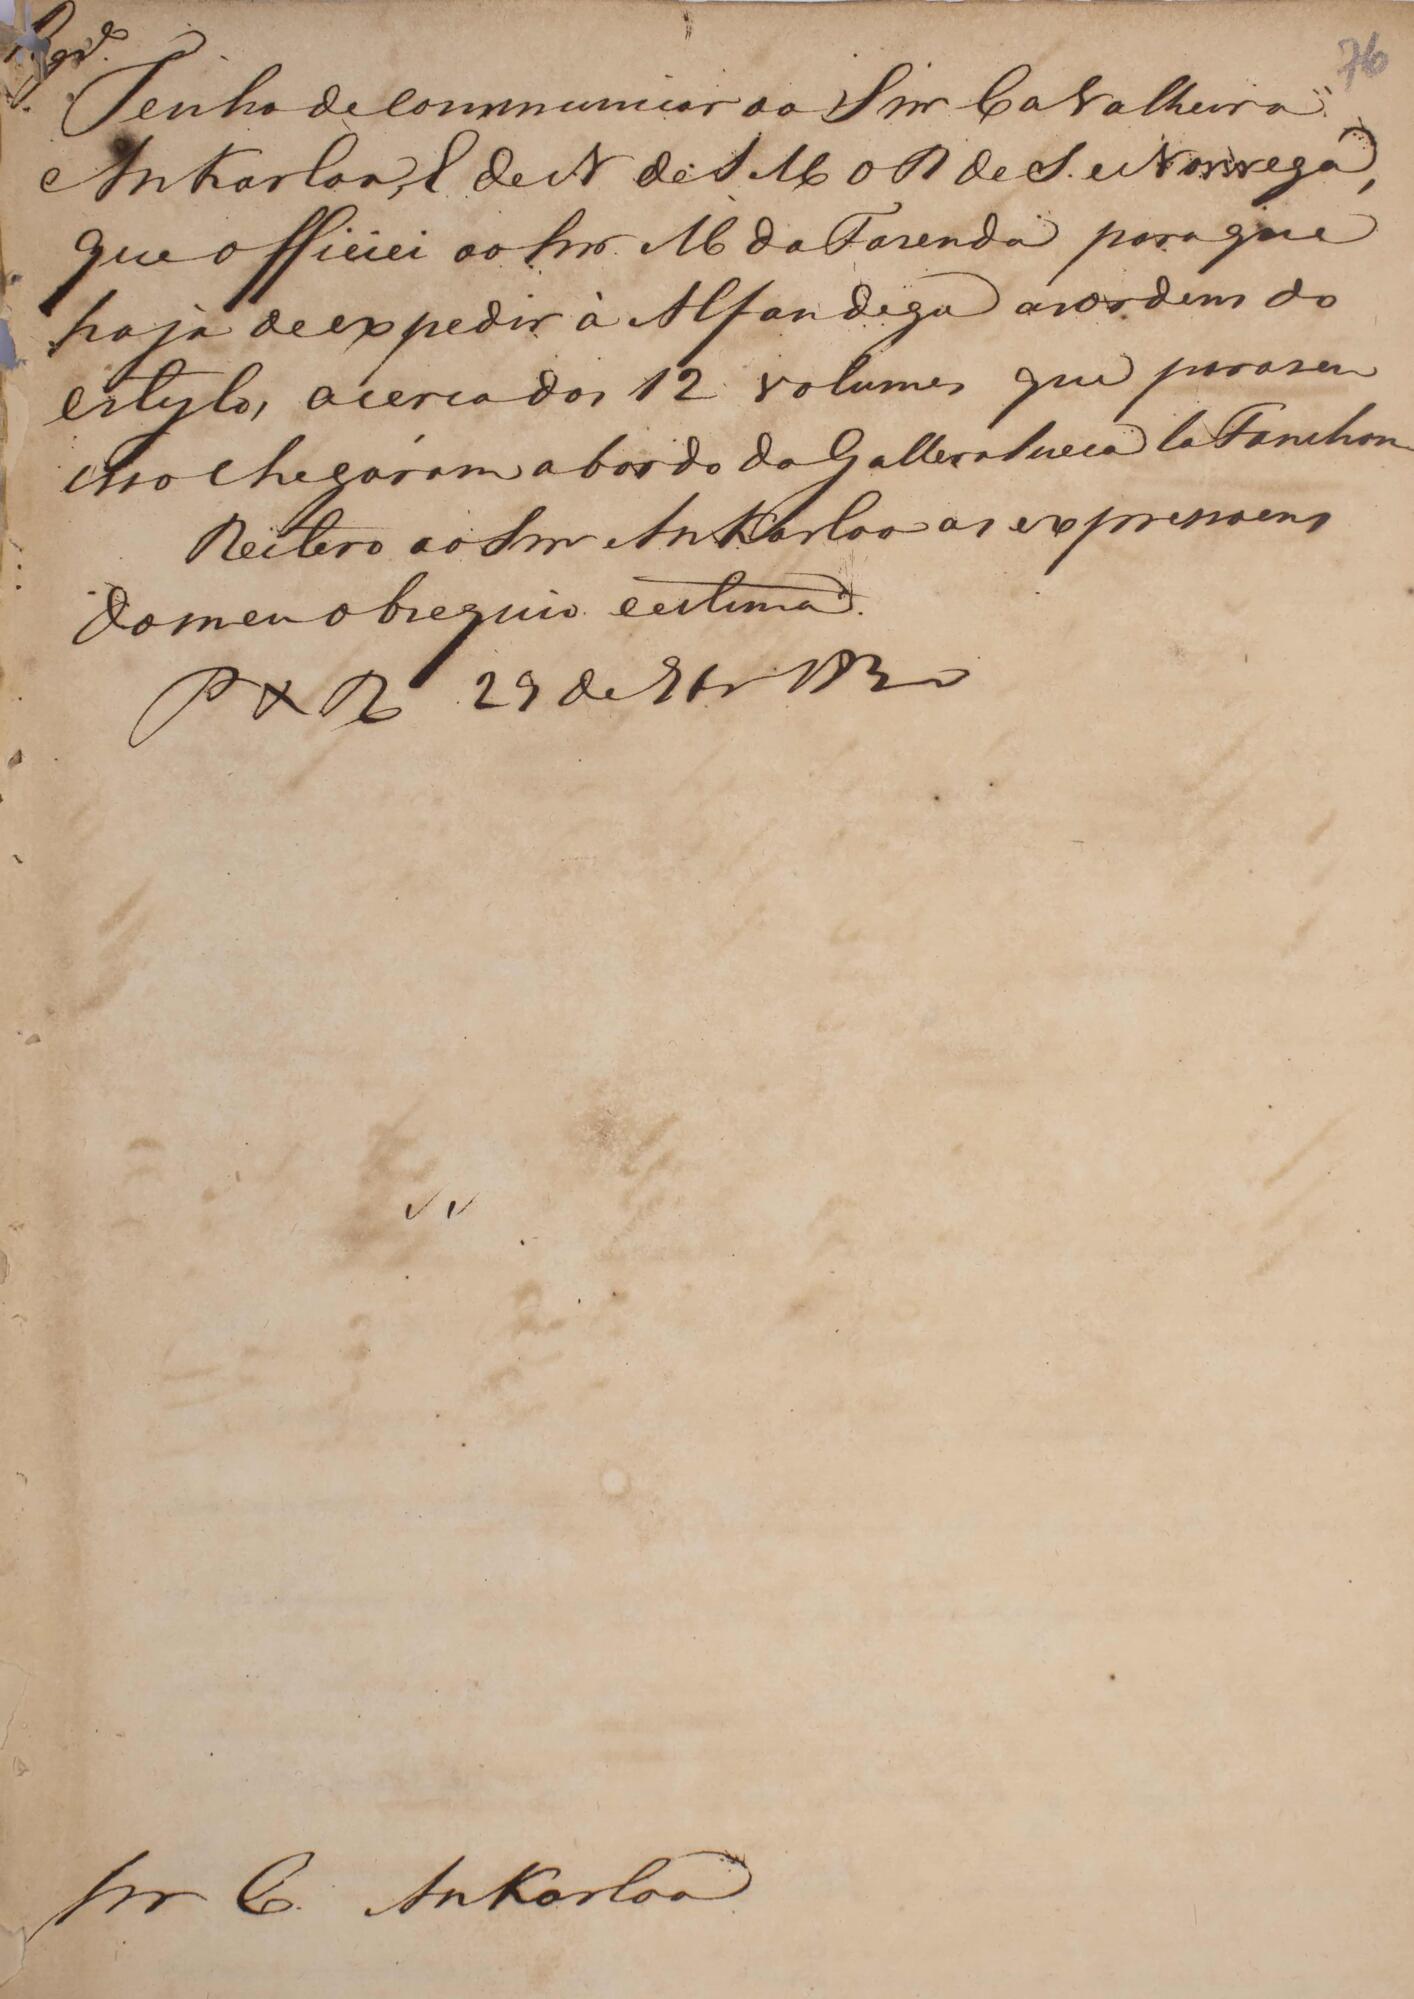 Rgd.
76
Tenho de communicar ao Snr Cavalheiro
Ankarloo, E de N de S. M. O R de S. e Norwega,
que officiei ao Snr. M da Fasenda para que
haja de expedir à Alfandega as ordens do
estylo, acerca dos 12 volumes que para seu
uso chegáram a bordo da Gallera Sueca la Fanchon
Reitero ao Snr Ankarloo as expressoens
do meu obsequio e estima.
P X R 29 de 9br 1830
Snr C. Ankarloo